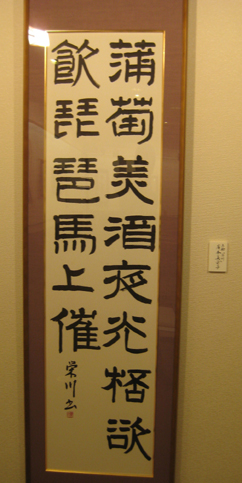 蒲萄美酒夜光桮欲
飲琵琶馬上催
榮川書